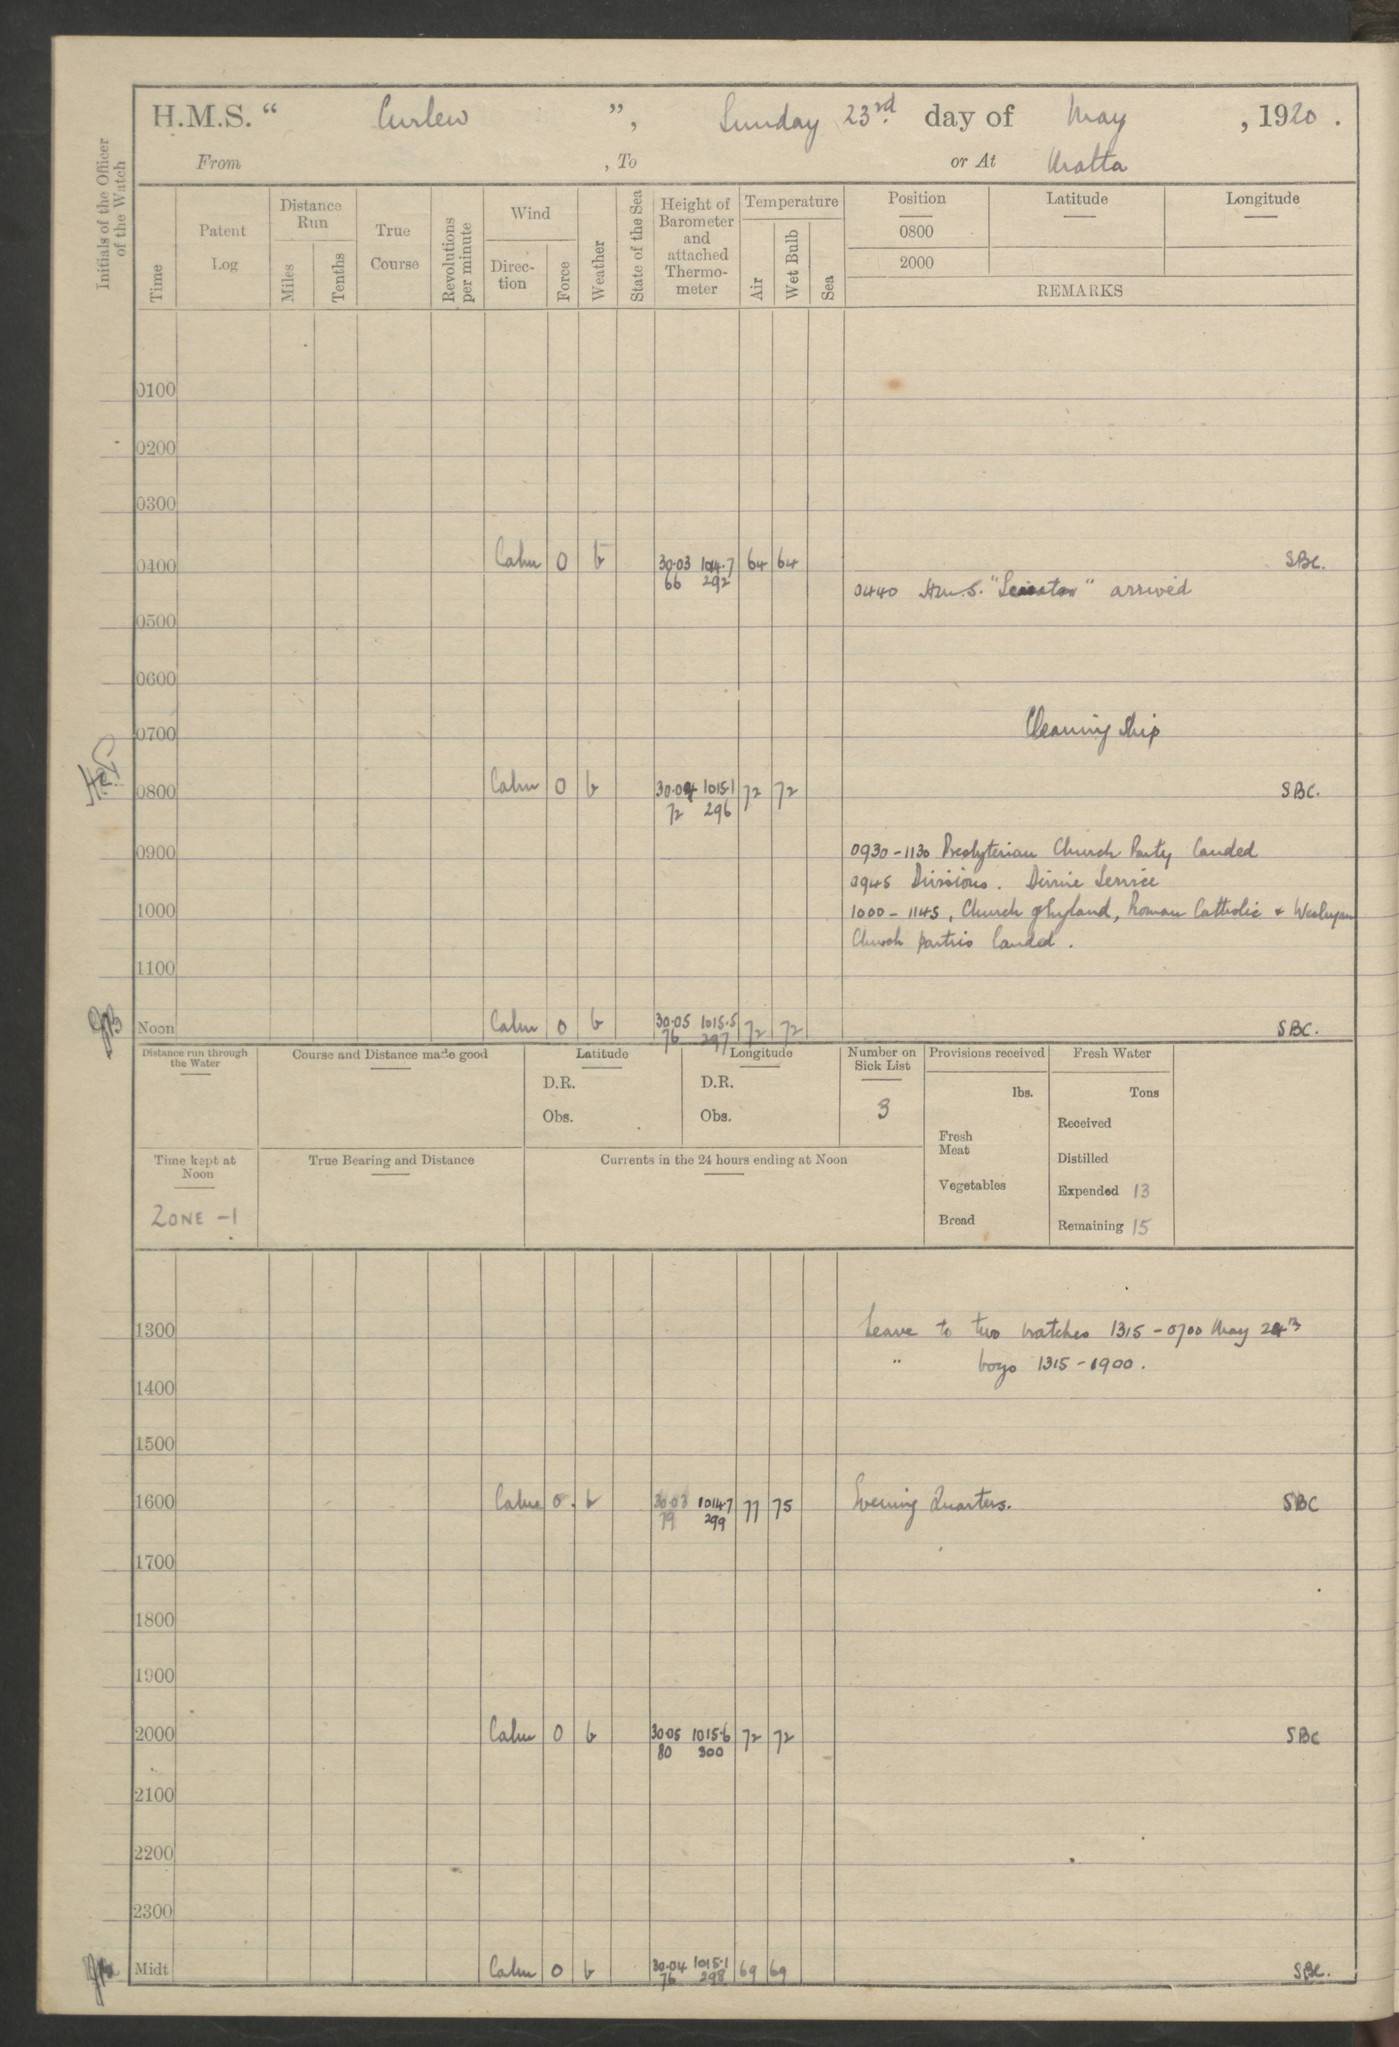 H.M.S. “ Curlew ”, Sunday 23rd. day of May , 1920 .
From , To or At Malta
Initials of the Officer of the Watch
Time
Patent Log
Distance Run
Miles
Tenths
True Course
Revolutions per minute
Wind
Direc-tion
Force
Weather
State of the Sea
Height of Barometer and attached Thermo-meter
Temperature
Air
Wet Bulb
Sea
Position
0800
2000
Latitude
Longitude
REMARKS
0100
0200
0300
0400 Calm 0 b 30.03 1014.7 64 64 SBC.
66 292
0440 H.M.S. " " arrived
0500
0600
Cleaning Ship
0700
0800 Calm 0 b 30.04 1015.1 72 72 SBC.
72 296
0900 0930-1130 Presbyterian Church Party landed
0945 Divisions. Divine Service
1000 1000-1145, Church of England, Roman Catholic & Wesleyan
Church parties landed.
1100
Noon Calm 0 b 30.05 1015.5 72 72 SBC.
76 297
Distance run through the Water
Course and Distance made good
Latitude
D.R.
Obs.
Longitude
D.R.
Obs.
Number on Sick List
3
Provisions received
lbs.
Fresh Meat
Vegetables
Bread
Fresh Water
Tons
Received
Distilled
Expended 13
Remaining 15
Time kept at Noon
ZONE -1
True Bearing and Distance
Currents in the 24 hours ending at Noon
1300 Leave to two watches 1315-0700 May 24th
" boys 1315-1900.
1400
1500
1600 Calm 0. b 30.03 1014.7 77 75 Evening Quarters. SBC
79 299
1700
1800
1900
2000 Calm 0 b 30.05 1015.6 72 72 SBC
80 300
2100
2200
2300
Midt Calm 0 b 30.04 1015.1 69 69 SBC.
76 298